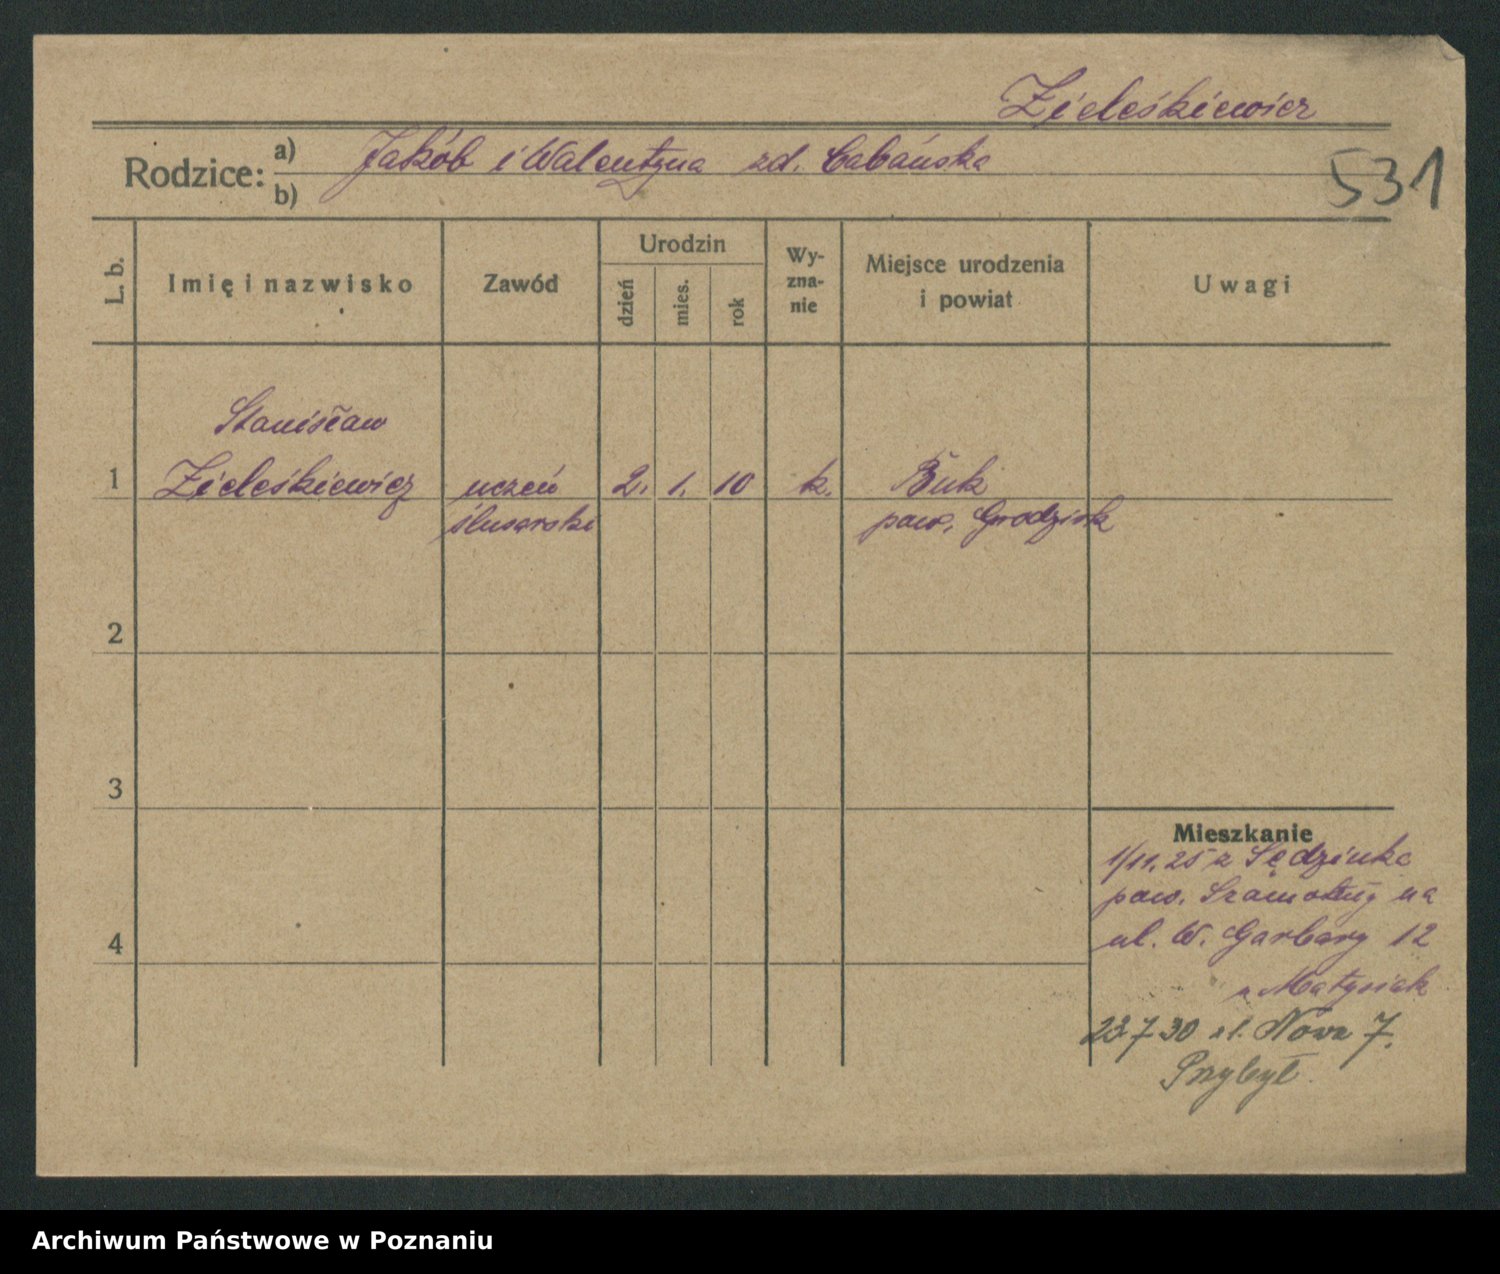 Zieleśkiewicz
Rodzice: a) Jakób i Walentyna zd. Cabańska
b)
531
L. b.
Imię i nazwisko
Zawód
Urodzin
dzień
mies.
rok
Wy-
zna-
nie
Miejsce urodzenia
i powiat
Uwagi
Stanisław
1 Zieleśkiewicz uczeń 2. 1. 10 k. Buk
ślusarski pow. Grodzisk
2
3
4
Mieszkanie
1/11.25 z Sędzinka
pow. Szamotuły na
ul. W. Garbary 12
Matysiak
23 7 30 ul. Nowa 7.
Przybył
Archiwum Państwowe w Poznaniu